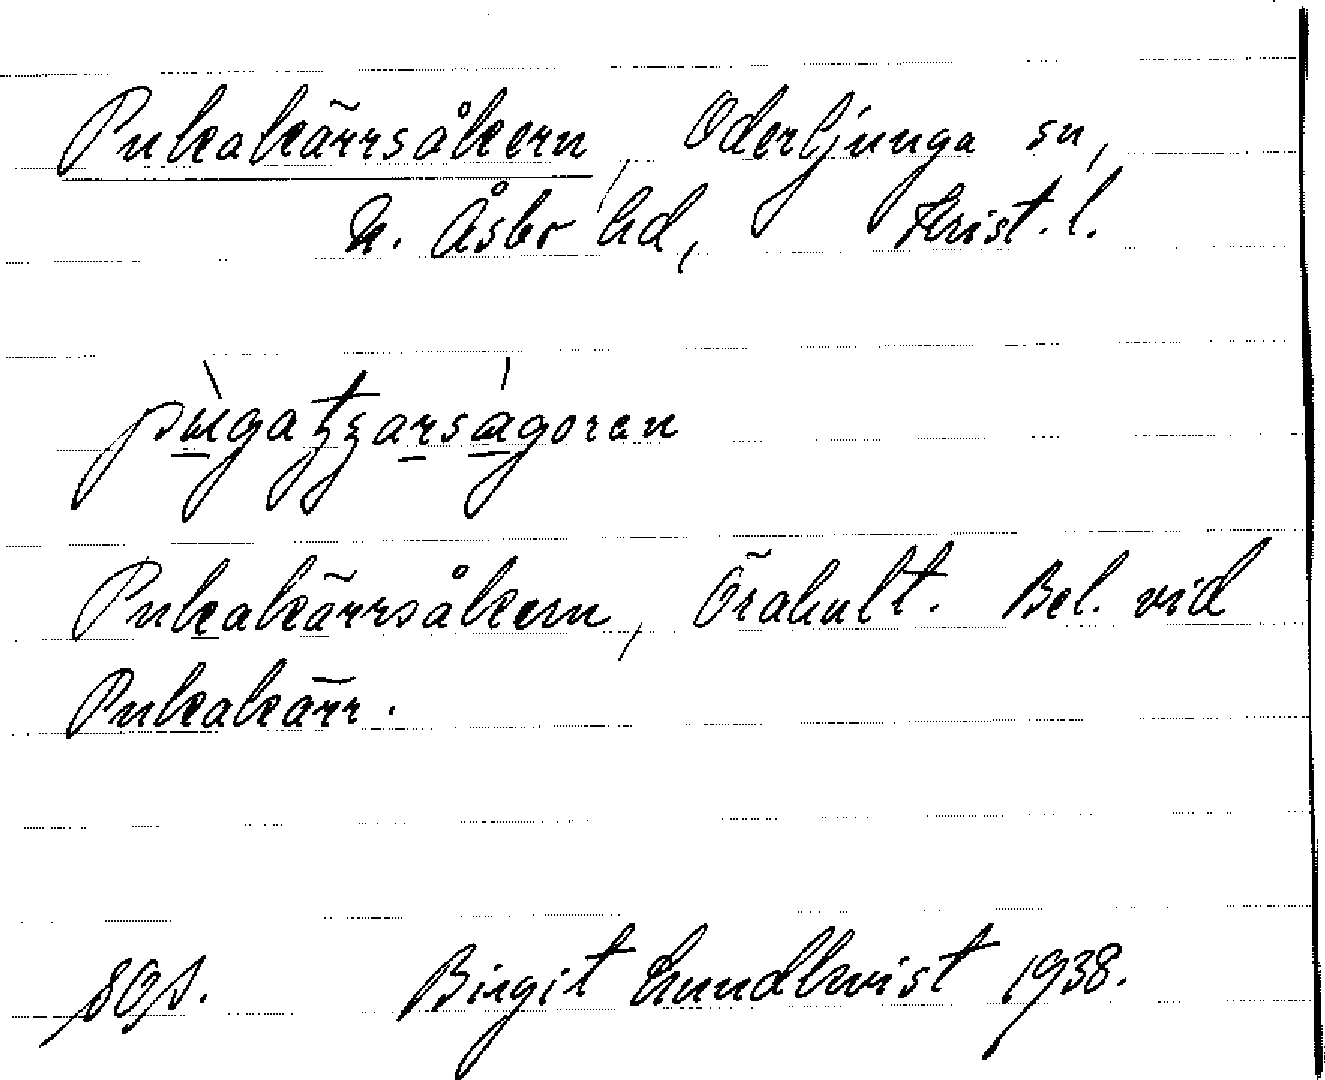 Pukakärrsåkern, Oderljunga sn,
N. Åsbo hd, Krist. l.
Pukakärrsåkern, Örahult. Bel. vid
Pukakärr.
Birgit Lundkvist 1938.